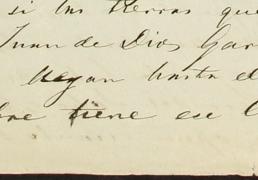 si las tierras que
Juan de Dios Gar
llegan hasta el
bre tiene ese